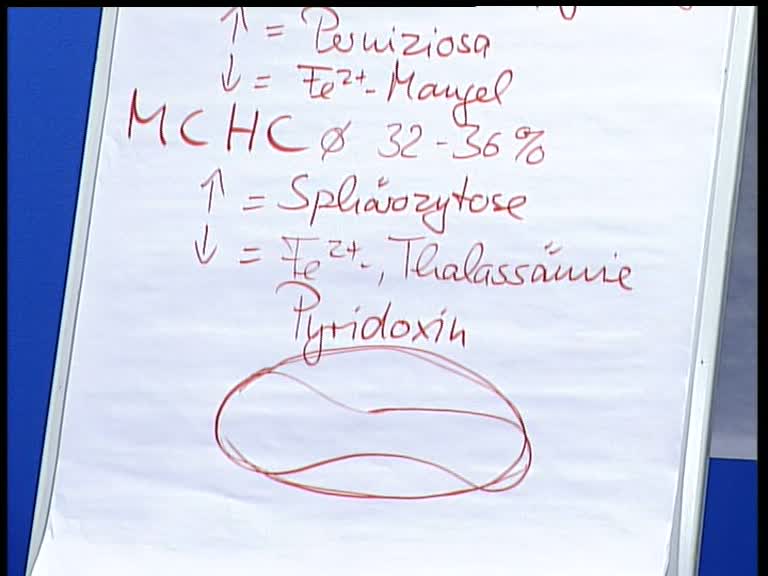 ↑ = Perniziosa
↓ = Fe²⁺- Mangel
MCHC ∅ 32-36%
↑ = Sphärozytose
↓ = Fe²⁺-, Thalassämie
Pyridoxin